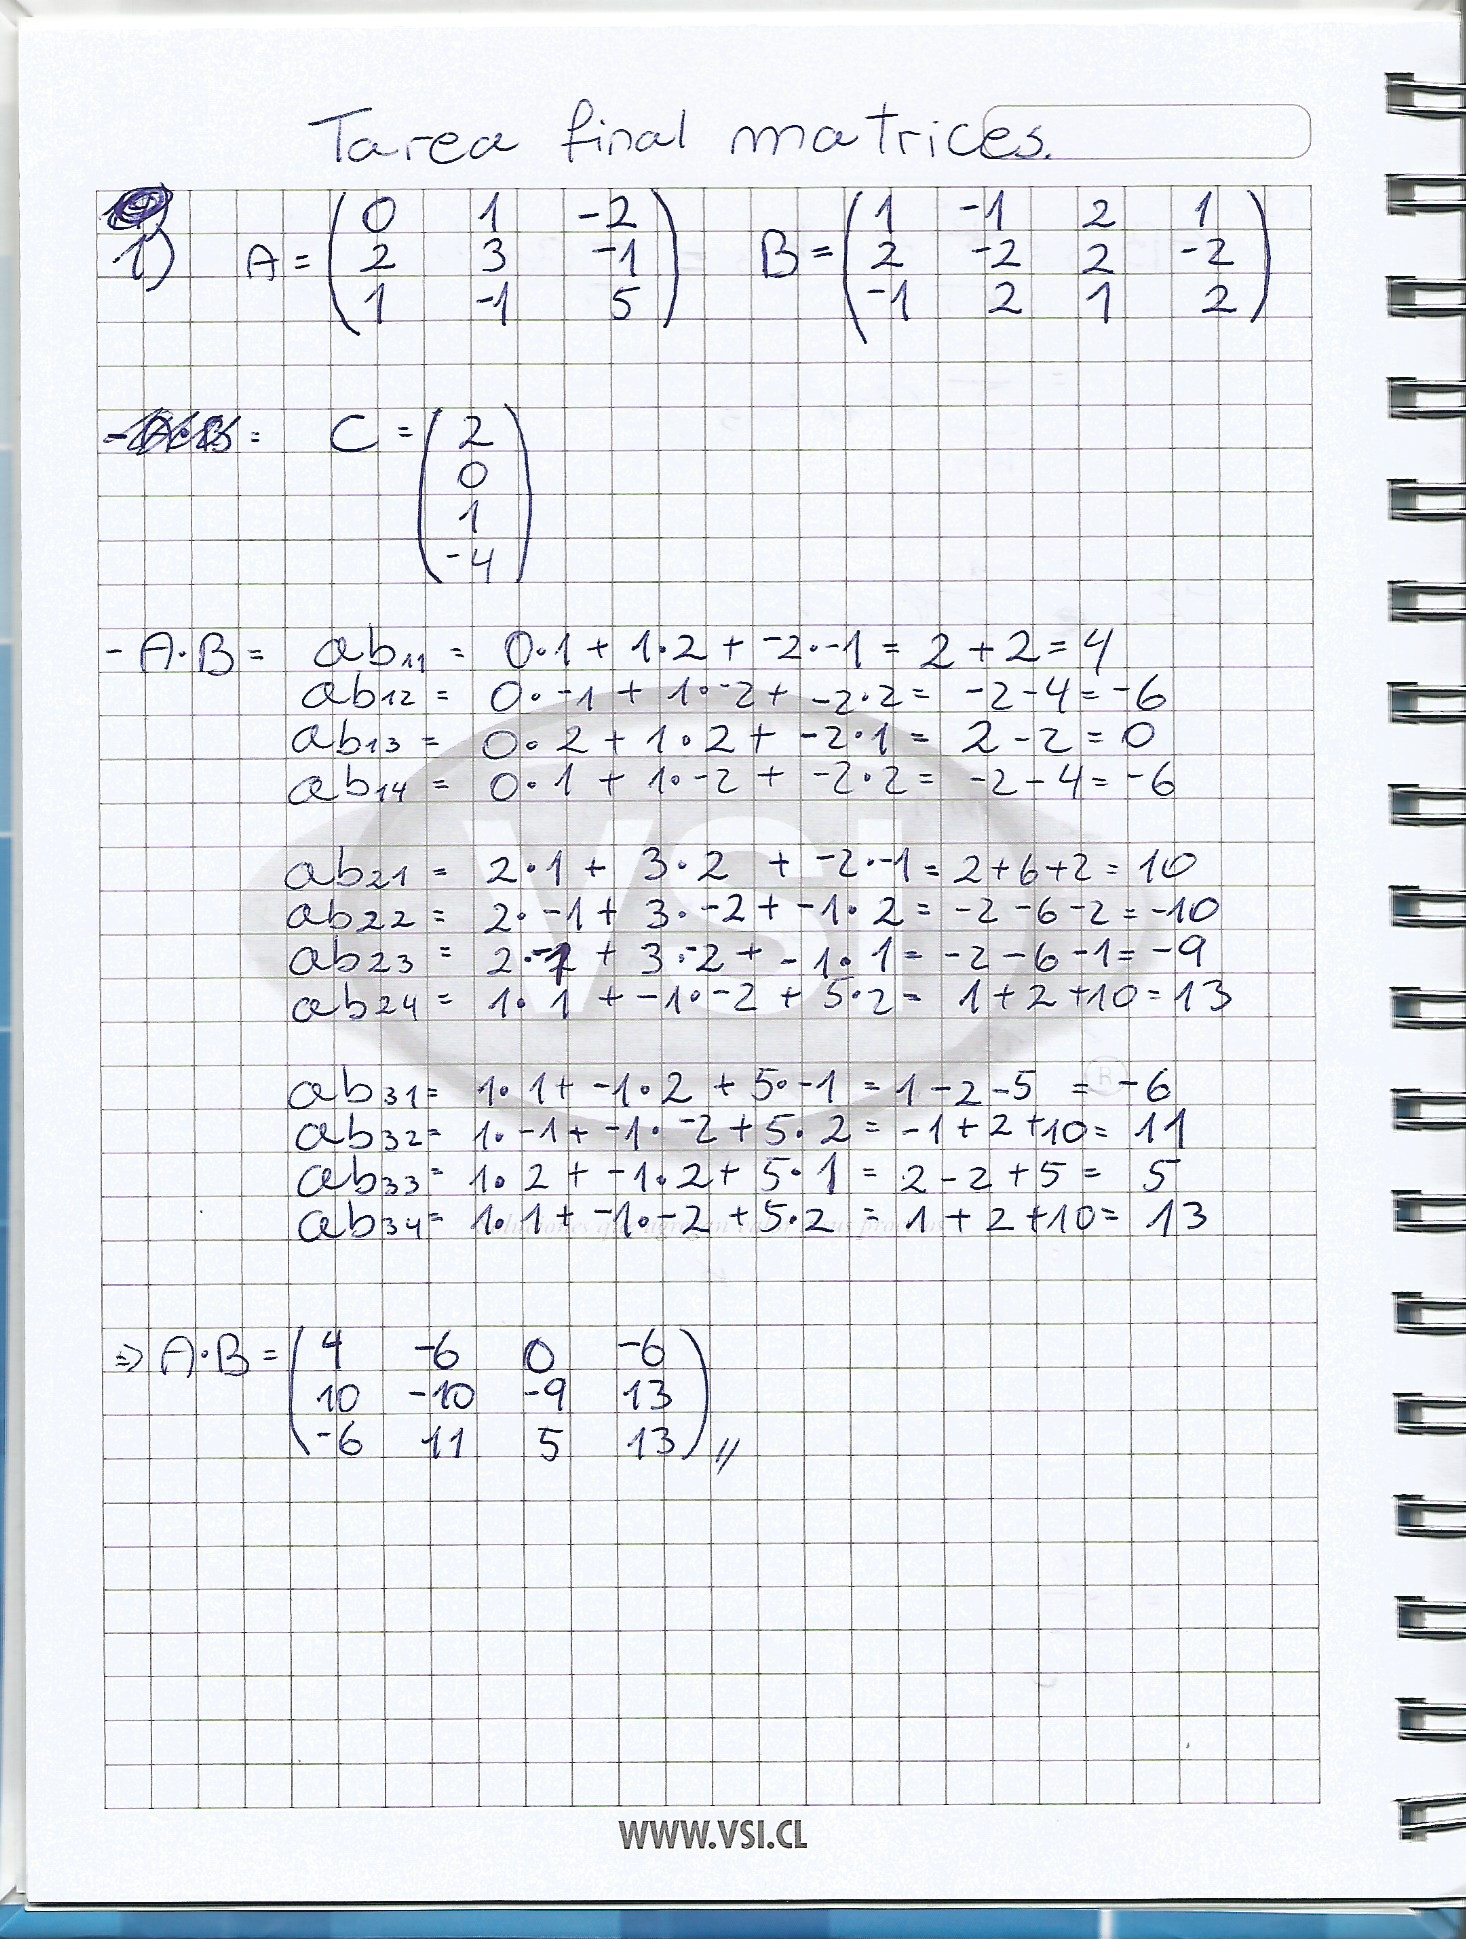 Tarea final matrices.
1) A = ( 0 1 -2 ) B = ( 1 -1 2 1 )
2 3 -1 2 -2 2 -2
1 -1 5 -1 2 1 2
- = C = ( 2 )
0
1
-4
- A·B = ab11 = 0·1 + 1·2 + -2·-1 = 2 + 2 = 4
ab12 = 0·-1 + 1·-2 + -2·2 = -2 - 4 = -6
ab13 = 0·2 + 1·2 + -2·1 = 2 - 2 = 0
ab14 = 0·1 + 1·-2 + -2·2 = -2 - 4 = -6
ab21 = 2·1 + 3·2 + -2·-1 = 2 + 6 + 2 = 10
ab22 = 2·-1 + 3·-2 + -1·2 = -2 - 6 - 2 = -10
ab23 = 2·-1 + 3·-2 + -1·1 = -2 - 6 - 1 = -9
ab24 = 1·1 + -1·-2 + 5·2 = 1 + 2 + 10 = 13
ab31 = 1·1 + -1·2 + 5·-1 = 1 - 2 - 5 = -6
ab32 = 1·-1 + -1·-2 + 5·2 = -1 + 2 + 10 = 11
ab33 = 1·2 + -1·2 + 5·1 = 2 - 2 + 5 = 5
ab34 = 1·1 + -1·-2 + 5·2 = 1 + 2 + 10 = 13
⇒ A·B = ( 4 -6 0 -6 )
10 -10 -9 13
-6 11 5 13 //
VSI
®
WWW.VSI.CL